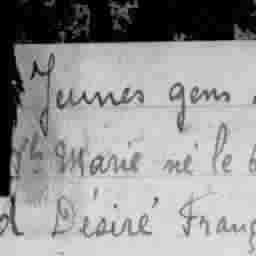 Jeunes gens
Marie né le 6
d Désiré Franç